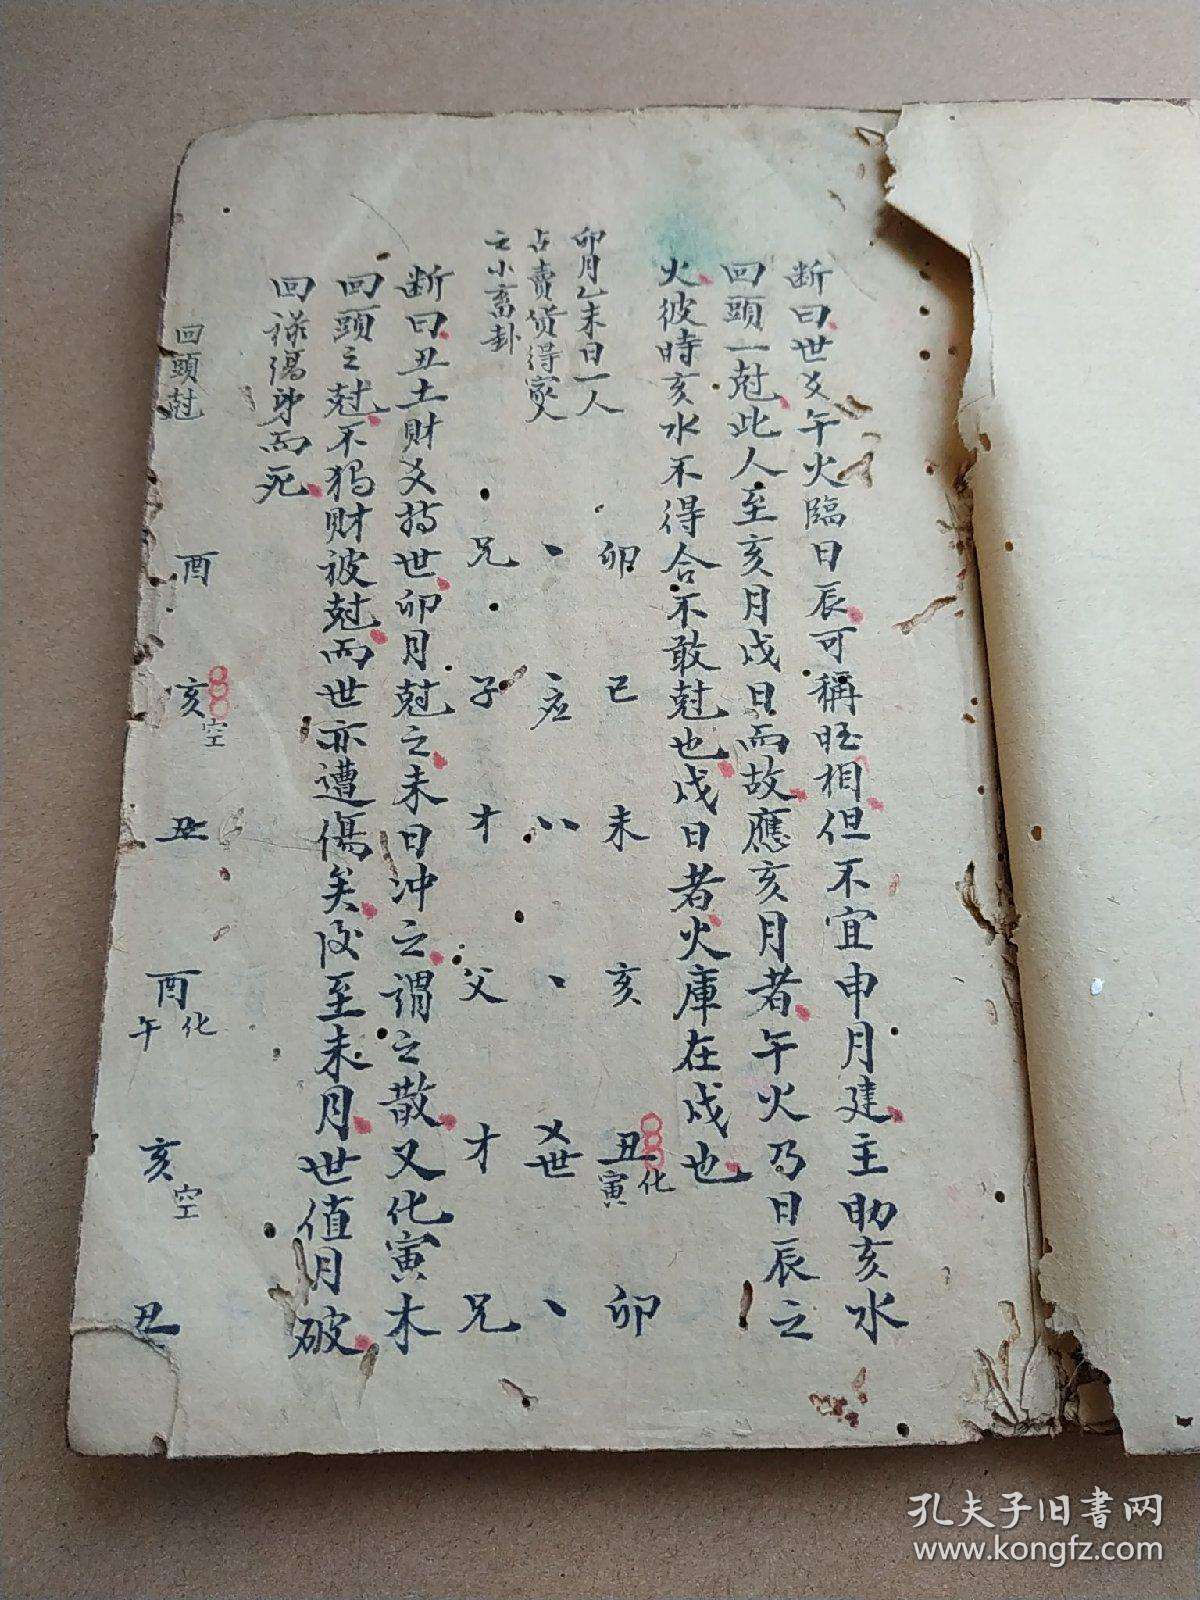 断曰世爻午火臨日辰可稱旺相但不宜申月建主助亥水
回頭一尅此人至亥月戌日而故應亥月者午火乃日辰之
火彼時亥水不得合不敢尅也戌日者火庫在戌也
卯月乙未日一人
占賣貨得家人
之小畜卦
卯 巳 未 亥 丑化寅 卯
、 、应 八 、 乂世 、
兄 子 才 父 才 兄
断曰丑土財爻持世卯月尅之未日冲之謂之散又化寅木
回頭之尅不獨財被尅而世亦遭傷矣後至未月世值月破
回祿傷身而死
回頭尅
酉 亥空 丑 酉化午 亥空 丑
孔夫子旧书网
www.kongfz.com